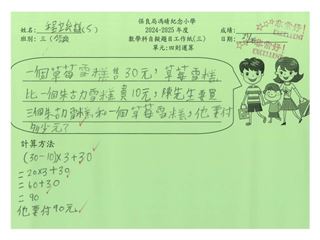 保良局馮晴紀念小學
2024-2025 年度
數學科自擬題目工作紙(三)
單元：四則運算
姓名：
(5)
班別：三(
成績：
日期：
您常好！
EXCELLENT
一個草莓雪糕售30元，草莓雪糕
比一個朱古力雪糕貴10元，陳先生要買
三個朱古力雪糕和一個草莓雪糕，他要付
多少元？
計算方法
(30-10)×3+30
=20×3+30
=60+30
=90
他要付90元。